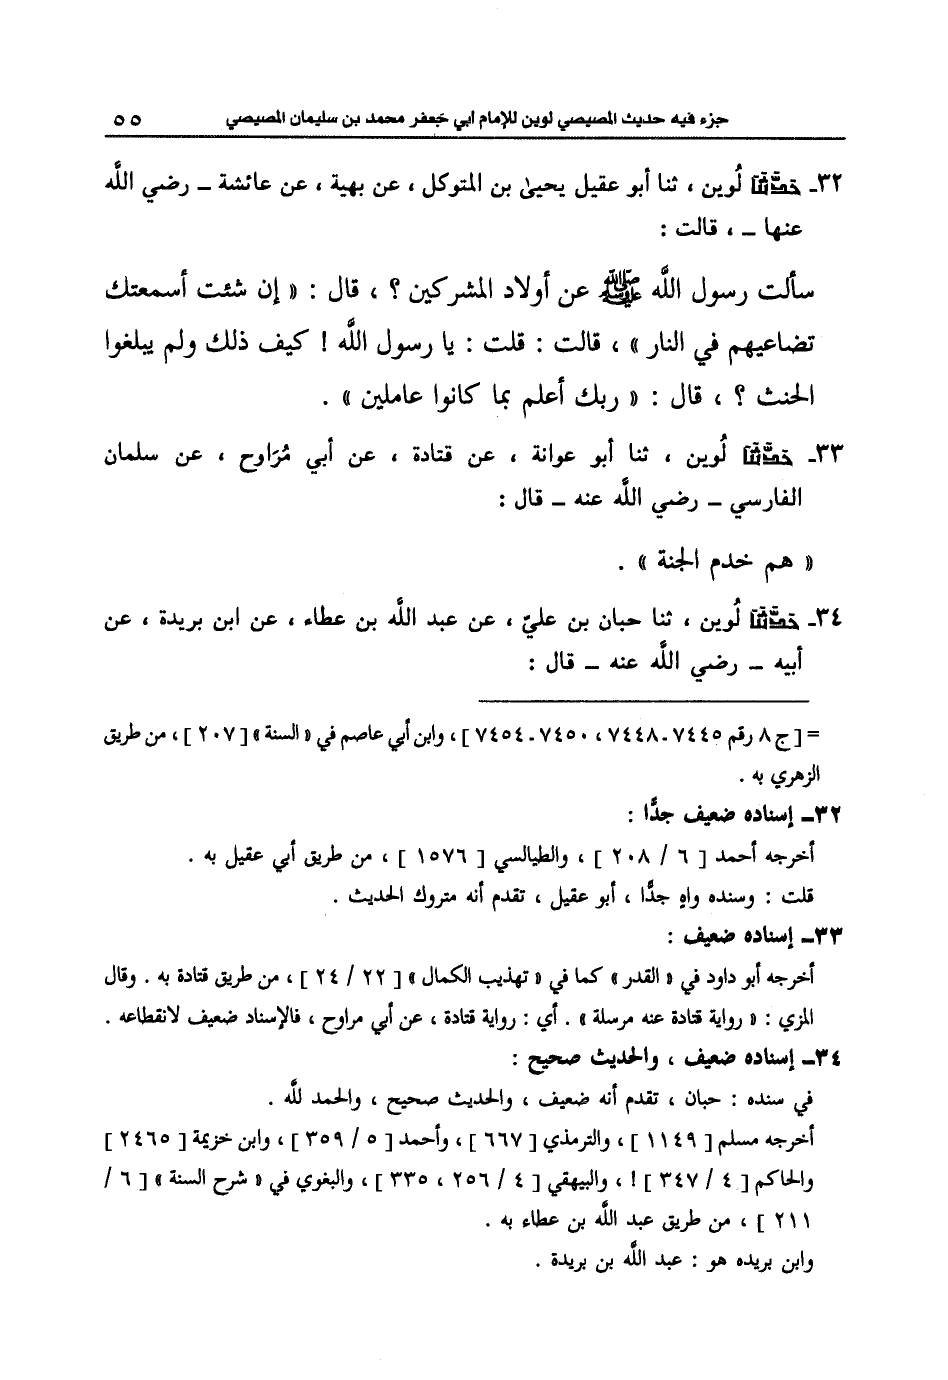 جزء فيه حديث المصيصي لوين للإمام أبي جعفر محمد بن سليمان المصيصي ٥٥
٣٢ـ حدَّثنا لُوين ، ثنا أبو عقيل يحيىٰ بن المتوكل ، عن بهية ، عن عائشة ـ رضي اللَّه
عنها ـ ، قالت :
سألت رسول اللَّه ﷺ عن أولاد المشركين ؟ ، قال : « إن شئت أسمعتك
تضاعيهم في النار » ، قالت : قلت : يا رسول اللَّه ! كيف ذلك ولم يبلغوا
الحنث ؟ ، قال : « ربك أعلم بما كانوا عاملين » .
٣٣ـ حدَّثنا لُوين ، ثنا أبو عوانة ، عن قتادة ، عن أبي مُرَاوح ، عن سلمان
الفارسي ـ رضي اللَّه عنه ـ قال :
« هم خدم الجنة » .
٣٤ـ حدَّثنا لُوين ، ثنا حبان بن عليّ ، عن عبد اللَّه بن عطاء ، عن ابن بريدة ، عن
أبيه ـ رضي اللَّه عنه ـ قال :
= [ ج ٨ رقم ٧٤٤٥ـ ٧٤٤٨ ، ٧٤٥٠ـ ٧٤٥٤ ] ، وابن أبي عاصم في « السنة » [ ٢٠٧ ] ، من طريق
الزهري به .
٣٢ـ إسناده ضعيف جدًّا :
أخرجه أحمد [ ٦ / ٢٠٨ ] ، والطيالسي [ ١٥٧٦ ] ، من طريق أبي عقيل به .
قلت : وسنده واهٍ جدًّا ، أبو عقيل ، تقدم أنه متروك الحديث .
٣٣ـ إسناده ضعيف :
أخرجه أبو داود في « القدر » كما في « تهذيب الكمال » [ ٢٢ / ٢٤ ] ، من طريق قتادة به . وقال
المزي : « رواية قتادة عنه مرسلة » . أي : رواية قتادة ، عن أبي مراوح ، فالإسناد ضعيف لانقطاعه .
٣٤ـ إسناده ضعيف ، والحديث صحيح :
في سنده : حبان ، تقدم أنه ضعيف ، والحديث صحيح ، والحمد للَّه .
أخرجه مسلم [ ١١٤٩ ] ، والترمذي [ ٦٦٧ ] ، وأحمد [ ٥ / ٣٥٩ ] ، وابن خزيمة [ ٢٤٦٥ ]
والحاكم [ ٤ / ٣٤٧ ] ! ، والبيهقي [ ٤ / ٢٥٦ ، ٣٣٥ ] ، والبغوي في « شرح السنة » [ ٦ /
٢١١ ] ، من طريق عبد اللَّه بن عطاء به .
وابن بريده هو : عبد اللَّه بن بريدة .